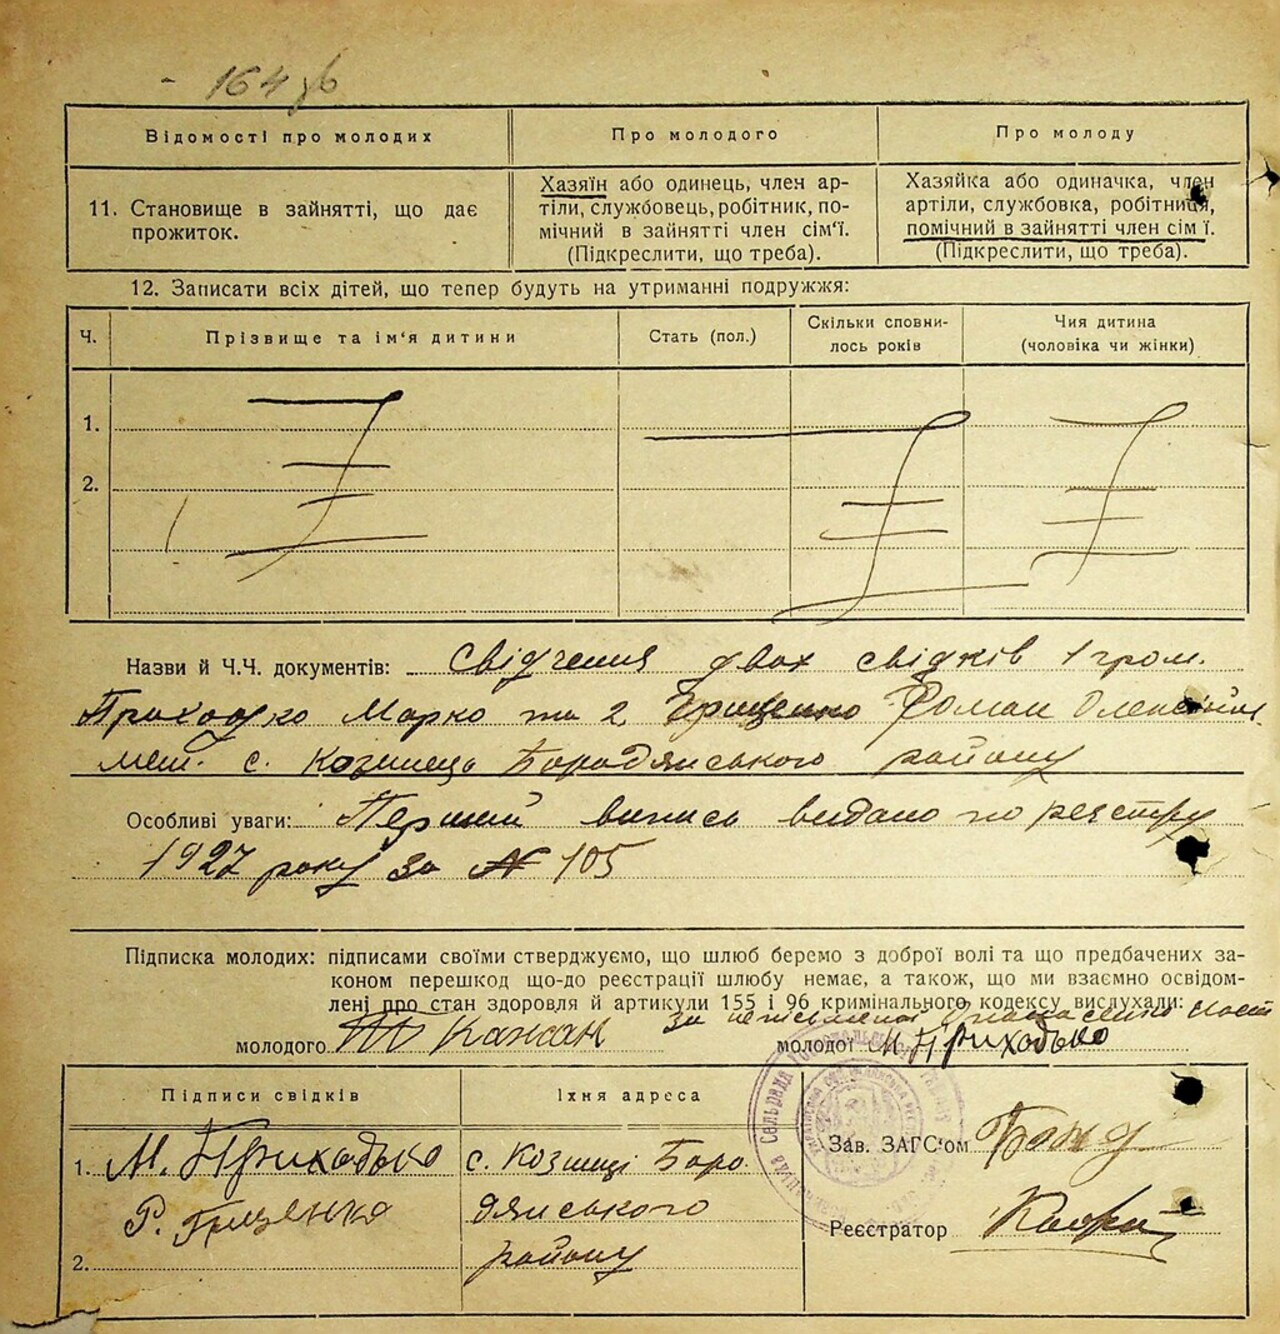 164 зв
Відомості про молодих
Про молодого
Про молоду
11. Становище в зайнятті, що дає
прожиток.
Хазяїн або одинець, член ар-
тіли, службовець, робітник, по-
мічний в зайнятті член сім'ї.
(Підкреслити, що треба).
Хазяйка або одиначка, член
артіли, службовка, робітниця,
помічний в зайнятті член сім'ї.
(Підкреслити, що треба).
12. Записати всіх дітей, що тепер будуть на утриманні подружжя:
Ч.
Прізвище та ім'я дитини
Стать (пол.)
Скільки сповни-
лось років
Чия дитина
(чоловіка чи жінки)
1.
2.
Назви й Ч.Ч. документів: Свідчення двох свідків 1 гром.
Приходько Марко та 2 Грищенко Роман
меш. с. Козинець Бородянського району
Особливі уваги: Перший випись видано по реєстру
1927 року за № 105
Підписка молодих: підписами своїми стверджуємо, що шлюб беремо з доброї волі та що предбачених за-
коном перешкод що-до реєстрації шлюбу немає, а також, що ми взаємно освідом-
лені про стан здоровля й артикули 155 і 96 кримінального кодексу вислухали:
за
молодого Кажан
молодої М Приходько
Підписи свідків
Їхня адреса
1. М. Приходько
Р. Грищенко
2.
с. Козинці Боро
дянського
району
Зав. ЗАГС'ом
Реєстратор